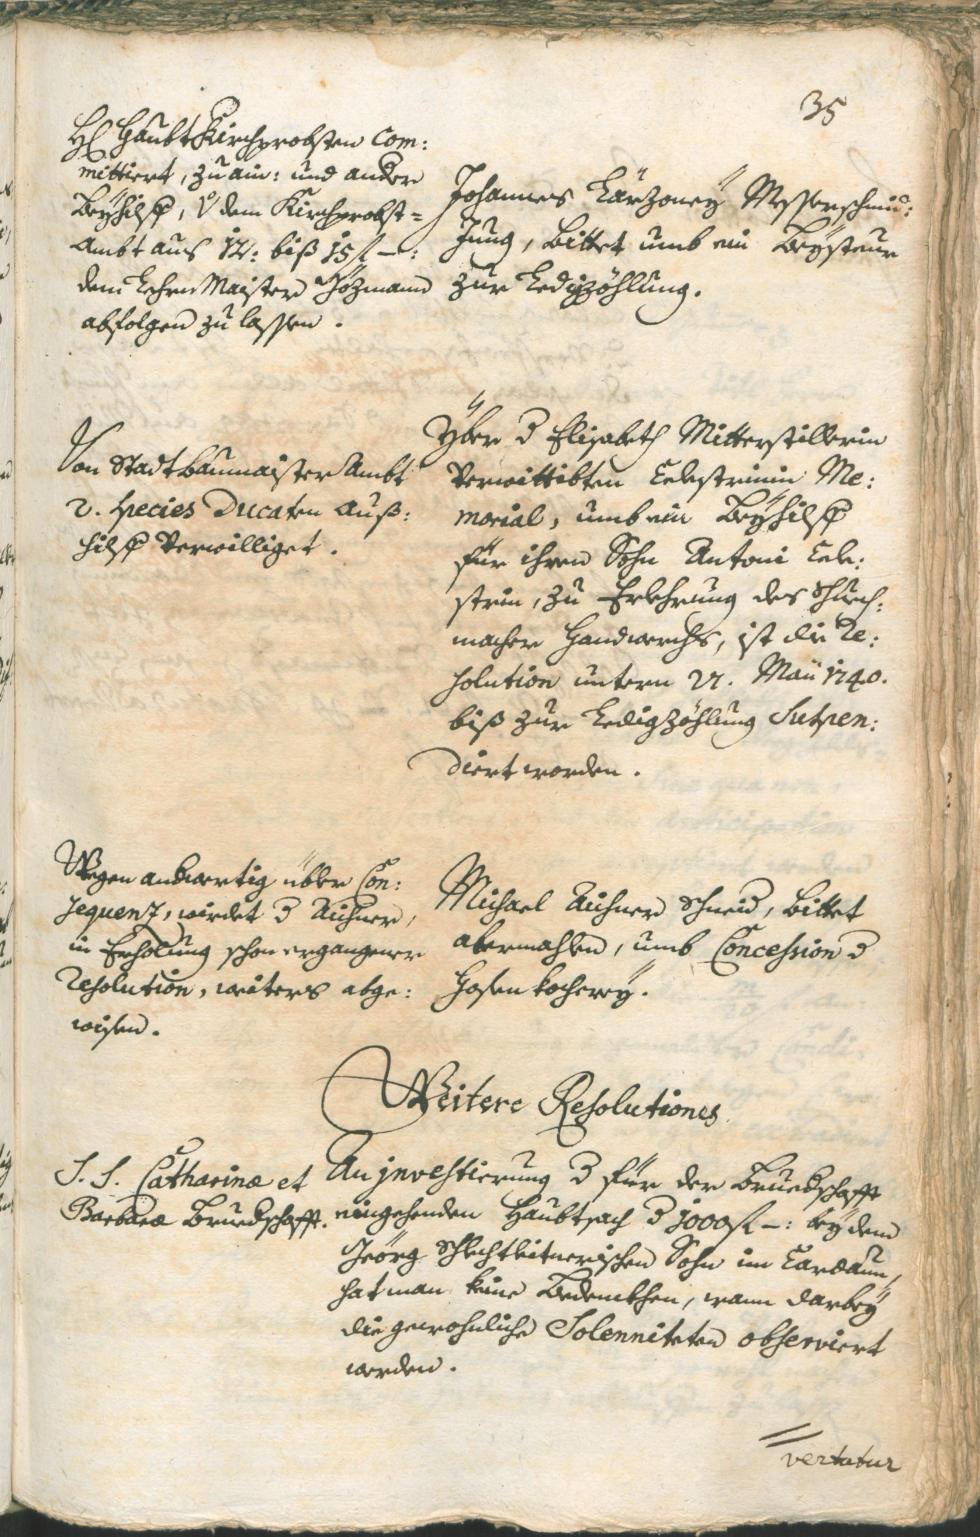 35
H Haubt Kirchprobsten com:
mittiert, zu ain: und andern
Beyhilff, V dem Kirchprobst=
Ambt aus 12: biß 15 f –:
dem Lehrn Maister Götzmann
abfolgen zu lassen.
Johannes Larzoney Messerschmid:
Jung, bittet umb ein Beysteur
zur Ledigzöhlung.
Von Stadtbaumaister Ambt
2. Species Ducaten Auß:
hilff verwilliget.
Yber d Elisabeth Mitterstillerin
verwittibten Celestrinin Me:
morial, umb ein Beyhilff
für ihren Sohn Antoni Cele:
strin, zu Erlehrnung des Schuech:
macher Handwerchs, ist die Re:
solution untern 27. Maii 1740.
biß zur Ledigzöhlung Suspen:
diert worden.
Wegen andwertig übler Con:
sequenz, wirdet d Aichner,
in Erholung schon ergangener
Resolution, weiters abge:
wisen.
Michael Aichner Schneid, bittet
abermahlen, umb Concession d
Hosen kocherey.
Weitere Resolutiones
S. S. Catharinæ et
Barbaræ Bruedschafft.
An jnvestierung d für der Bruedschafft
eingehenden Haubtsach d 1000 f –: bey dem
Jeörg Schlechtleitnerischen Sohn im Cardaun,
hat man keine Bedenckhen, wann darbey
die gewohnliche Solenniteten observiert
werden.
vertatur